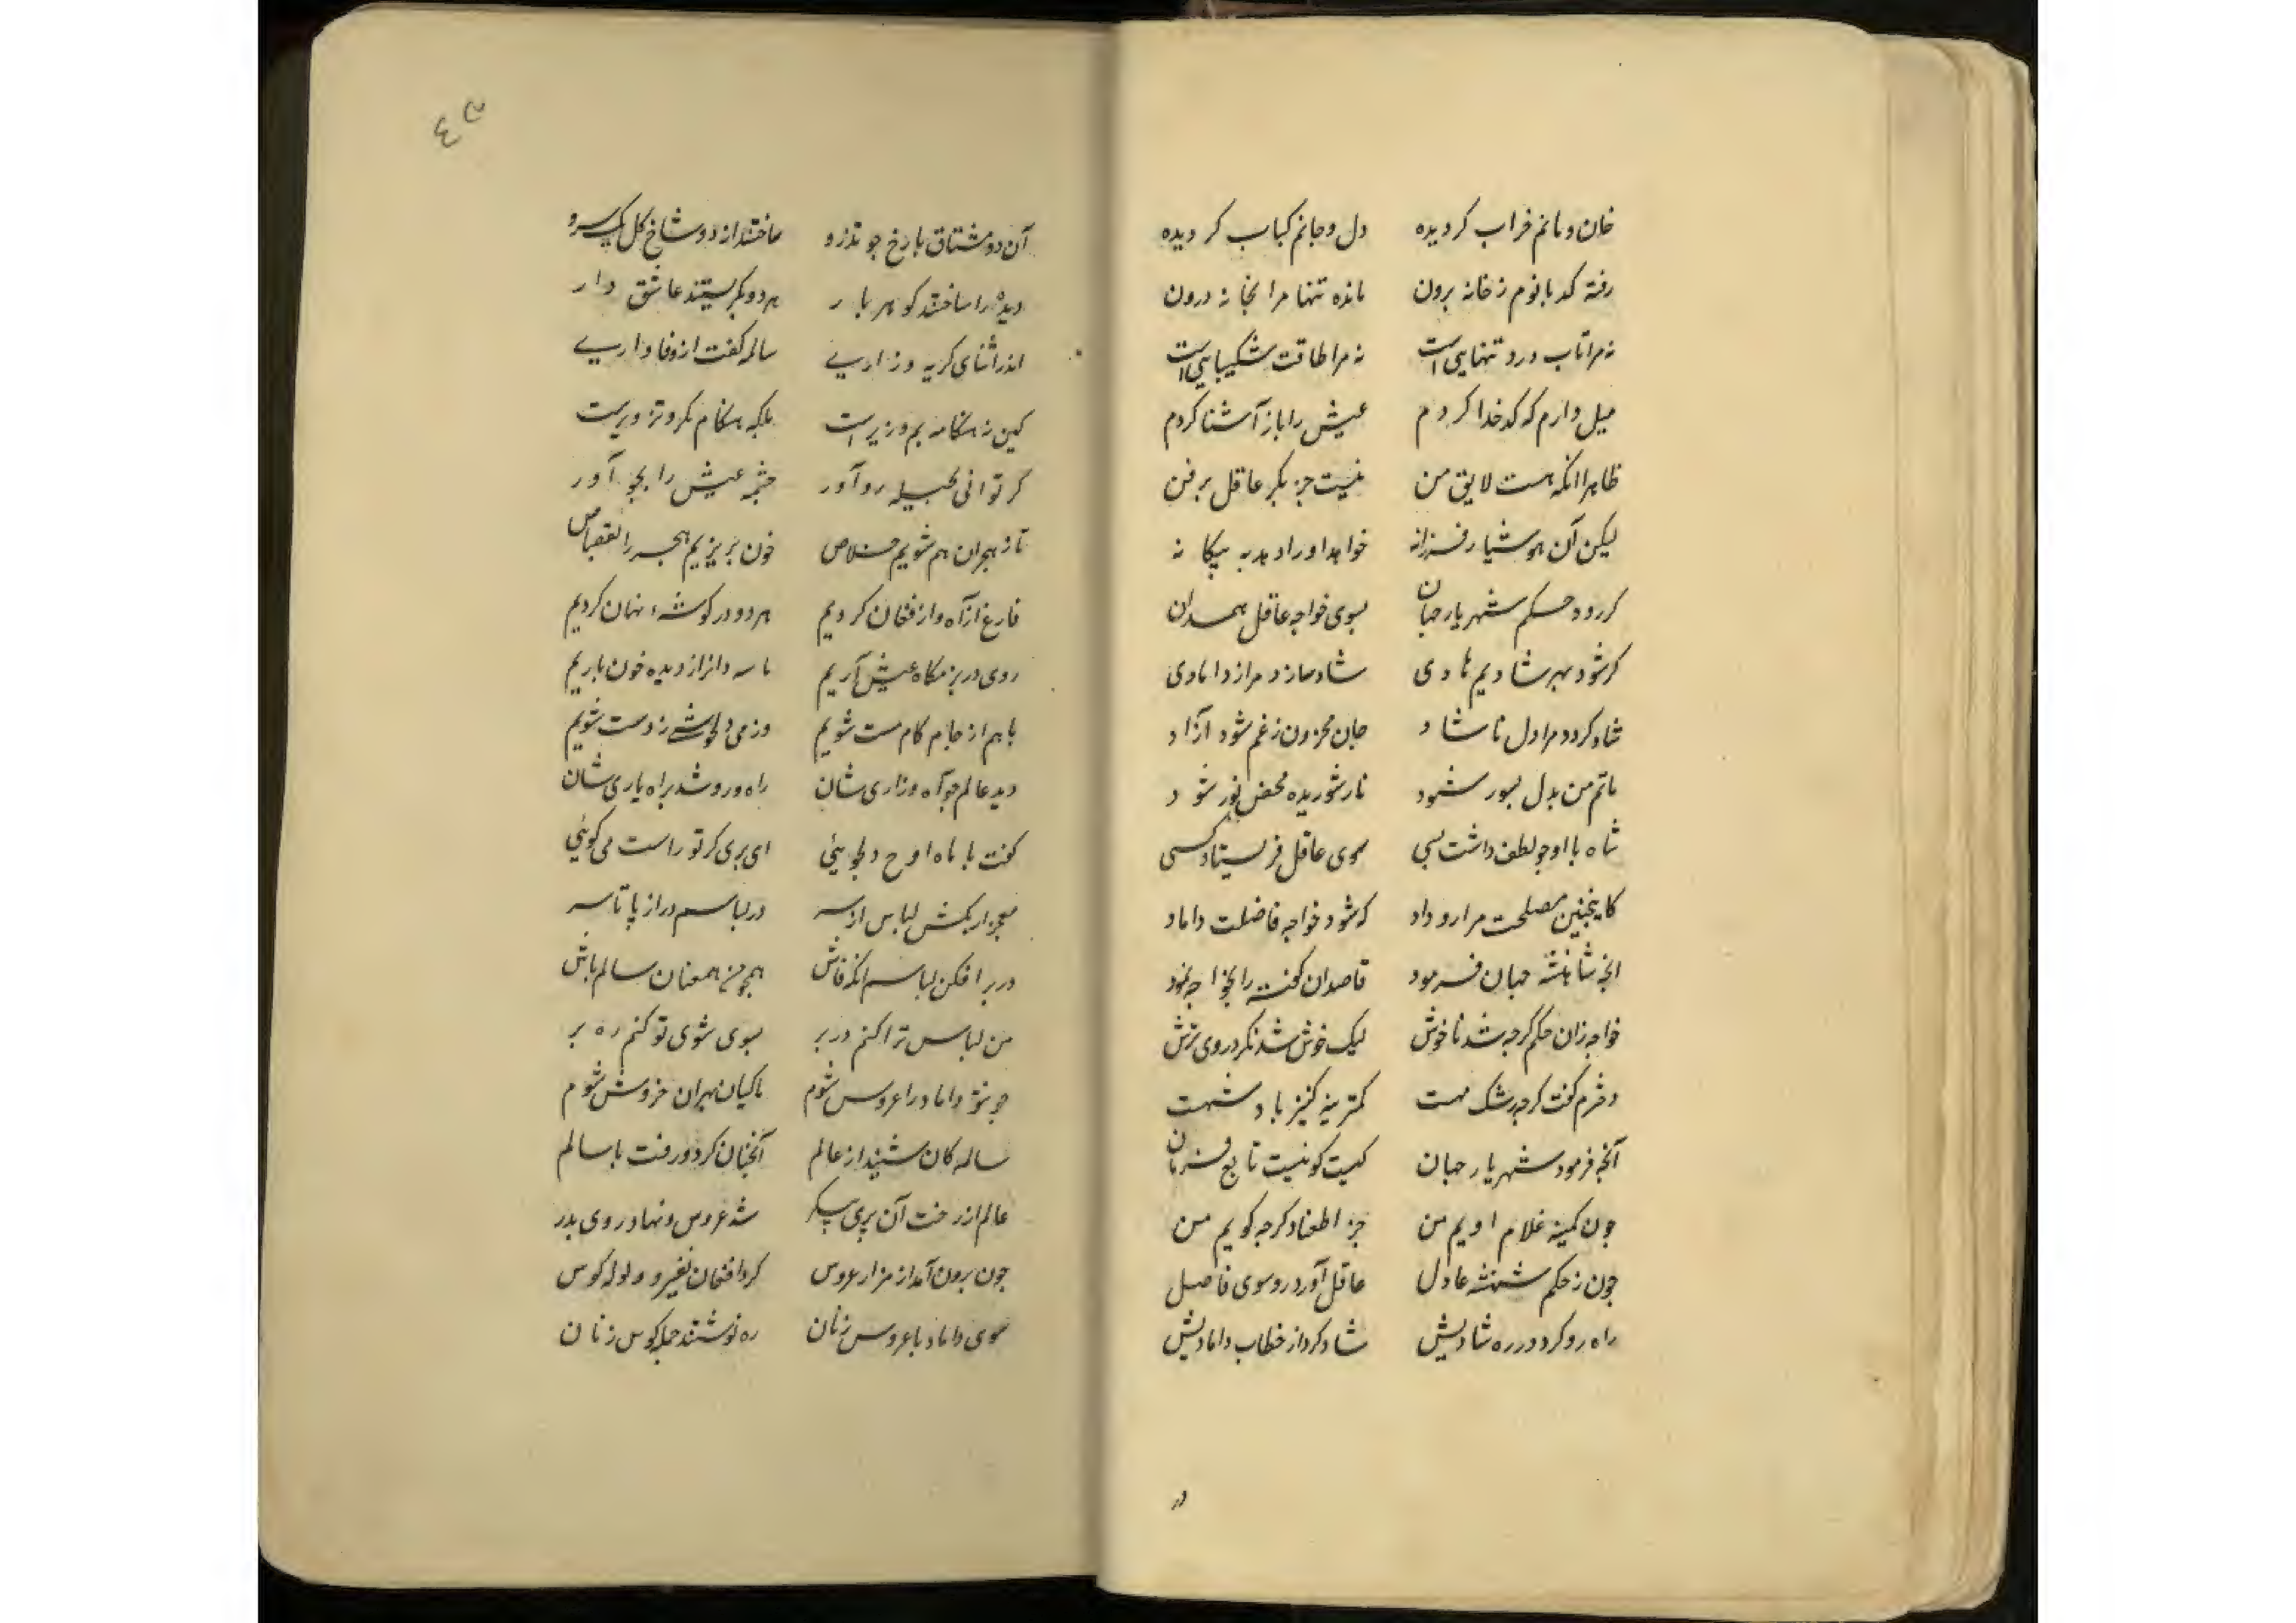 خان و مانم خراب کردیده دل و جانم کباب کردیده
رفته کدبانوم ز خانه برون مانده تنها مرا بخانه درون
نه مرا تاب درد تنهایی است نه مرا طاقت شکیبایی است
میل دارم که کدخدا کردم عیش را باز آشنا کردم
ظاهرا انکه هست لایق من نیست جز بکر عاقل پر فن
لیکن آن هوشیار فرزانه خواهد او را دهد به بیکانه
کر رود حکم شهریار جهان بسوی خواجه عاقل همدان
کر شود بهر شادیم هادی شاد سازد مرا ز دامادی
شاد کردد مرا دل ناشاد جان محزون ز غم شود آزاد
ماتم من بدل بسور شود نار شوریده محض نور شود
شاه با او چو لطف داشت بسی سوی عاقل فرستاد کسی
کاینچنین مصلحت مرا رو داد که شود خواجه فاضلت داماد
انچه شاهنشه جهان فرمود قاصدان کفته را بخواجه نمود
خواجه زان حکم کرچه شد ناخوش لیک خوش شد نکرد روی ترش
دخترم کفت کرچه رشک مهست کمترینه کنیز باد شهت
آنچه فرمود شهریار جهان کیست کو نیست تابع فرمان
چون کمینه غلام اویم من جز اطعناد کرچه کویم من
چون ز حکم شهنشه عادل عاقل آورد رو سوی فاضل
راه رو کرد در ره شادیش شاد کرد از خطاب دامادیش
در
٤٣
آن دو مشتاق با رخ چو تذرو ساختند از دو شاخ کل یک سرو
دیده را ساختند کوهر بار هر دو بکریستند عاشق وار
اندر اثنای کریه و زاریے سالمه کفت از وفاداریے
کین نه هنکامه بم و زیرست بلکه هنکام مکر و تزویرست
کر توانی بحیله رو آور چشمه عیش را بجو آور
تا ز هجران هم شویم خلاص خون بریزیم هجر را بقصاص
فارغ از آه و از فغان کردیم هر دو در کوشهٔ نهان کردیم
روی در بزمکاه عیش آریم از دیده خون باریم
باهم از جام کام مست شویم وز می ز دست شویم
دید عالم چو آه و زاری شان راه ور شد براه یاری شان
کفت با ماه اوج دلجویئی ای پری کر تو راست می کوئیی
معجز ار بکش لباس از سر در لباسم در از پا تا سر
در بر افکن لباسم انکه فاش همچو من همعنان سالم باش
من لباس ترا کنم در بر بسوی شوی تو کنم ره بر
چو تو داماد را عروس شوم ماکیان بهر آن خروس شوم
سالمه کان شنید از عالم آنچنان کرد و رفت با سالم
عالم از رخت آن پری پیکر شد عروس و نهاد روی بدر
چون برون آمد از مزار عروس کرد افغان نفیر و ولوله کوس
سوی داماد با عروس زنان ره نوشتند جمله کوس زنان